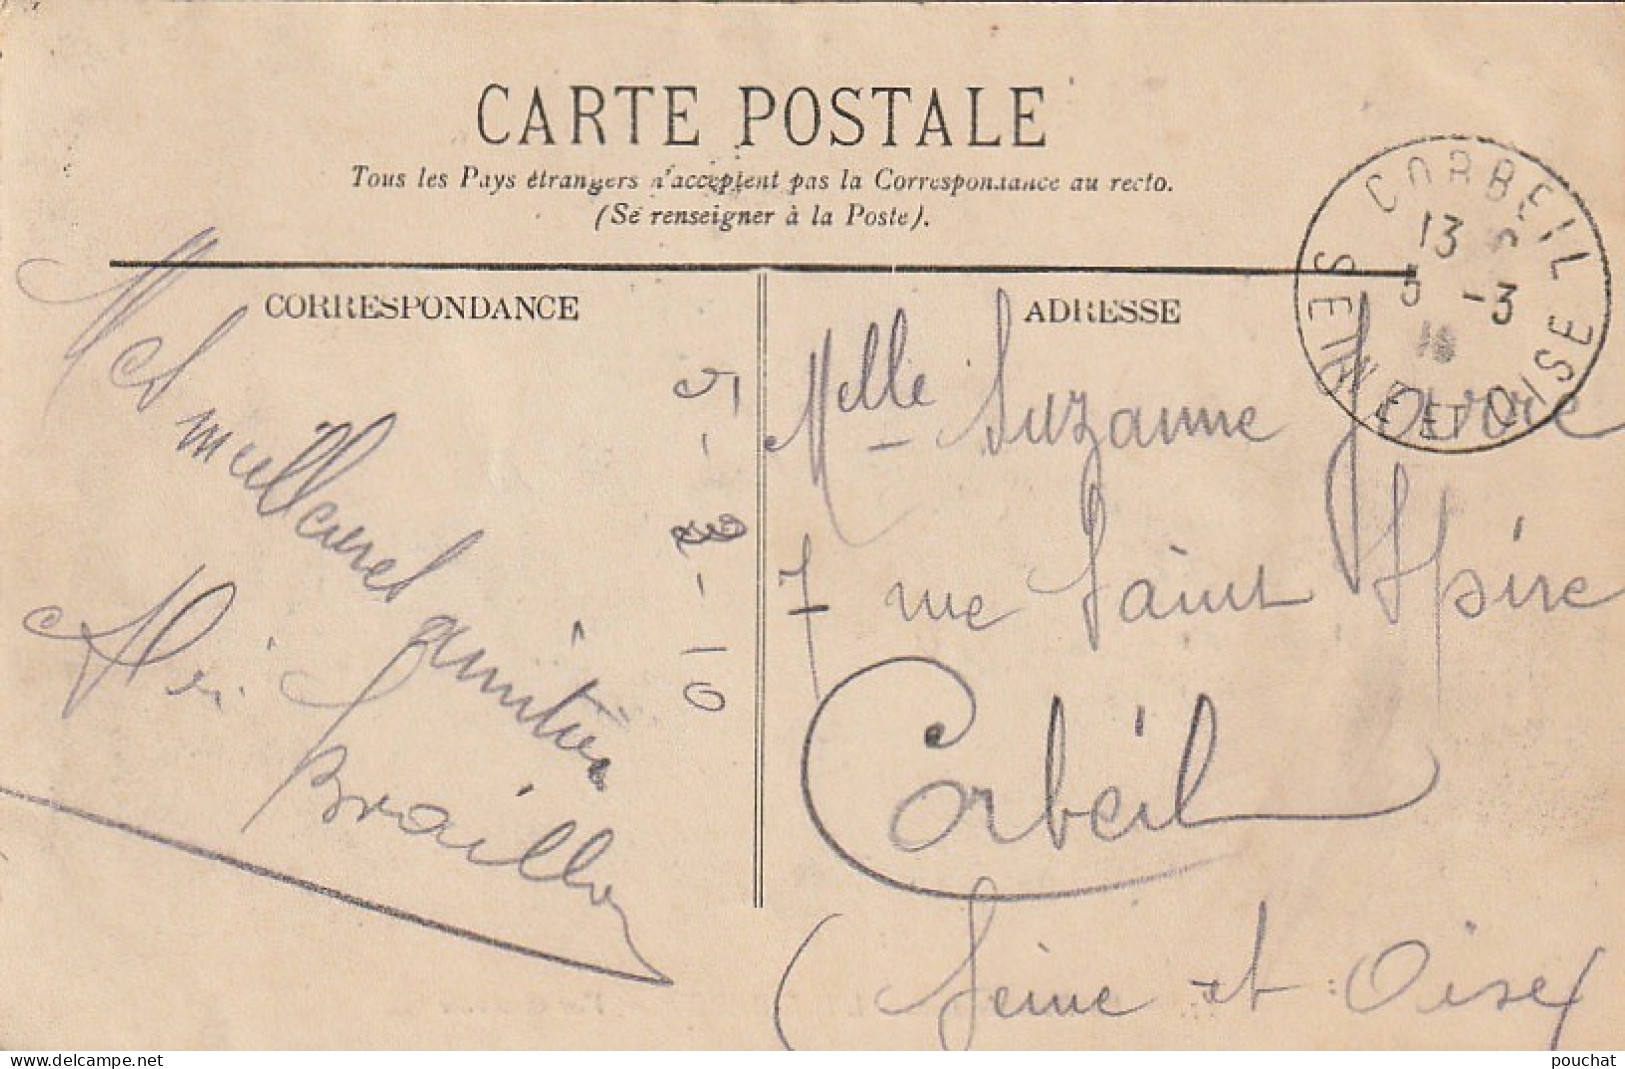 CARTE POSTALE
Tous les Pays étrangers n'acceptent pas la Correspondance au recto.
(Se renseigner à la Poste).
CORRESPONDANCE
ADRESSE
CORBEIL
13
5 -3
10
SEINE ET OISE
meilleures amitiés
Braillon
5-3-10
Melle Suzanne
7 rue Saint Spire
Corbeil
(Seine et Oise)
www.delcampe.net
pouchat